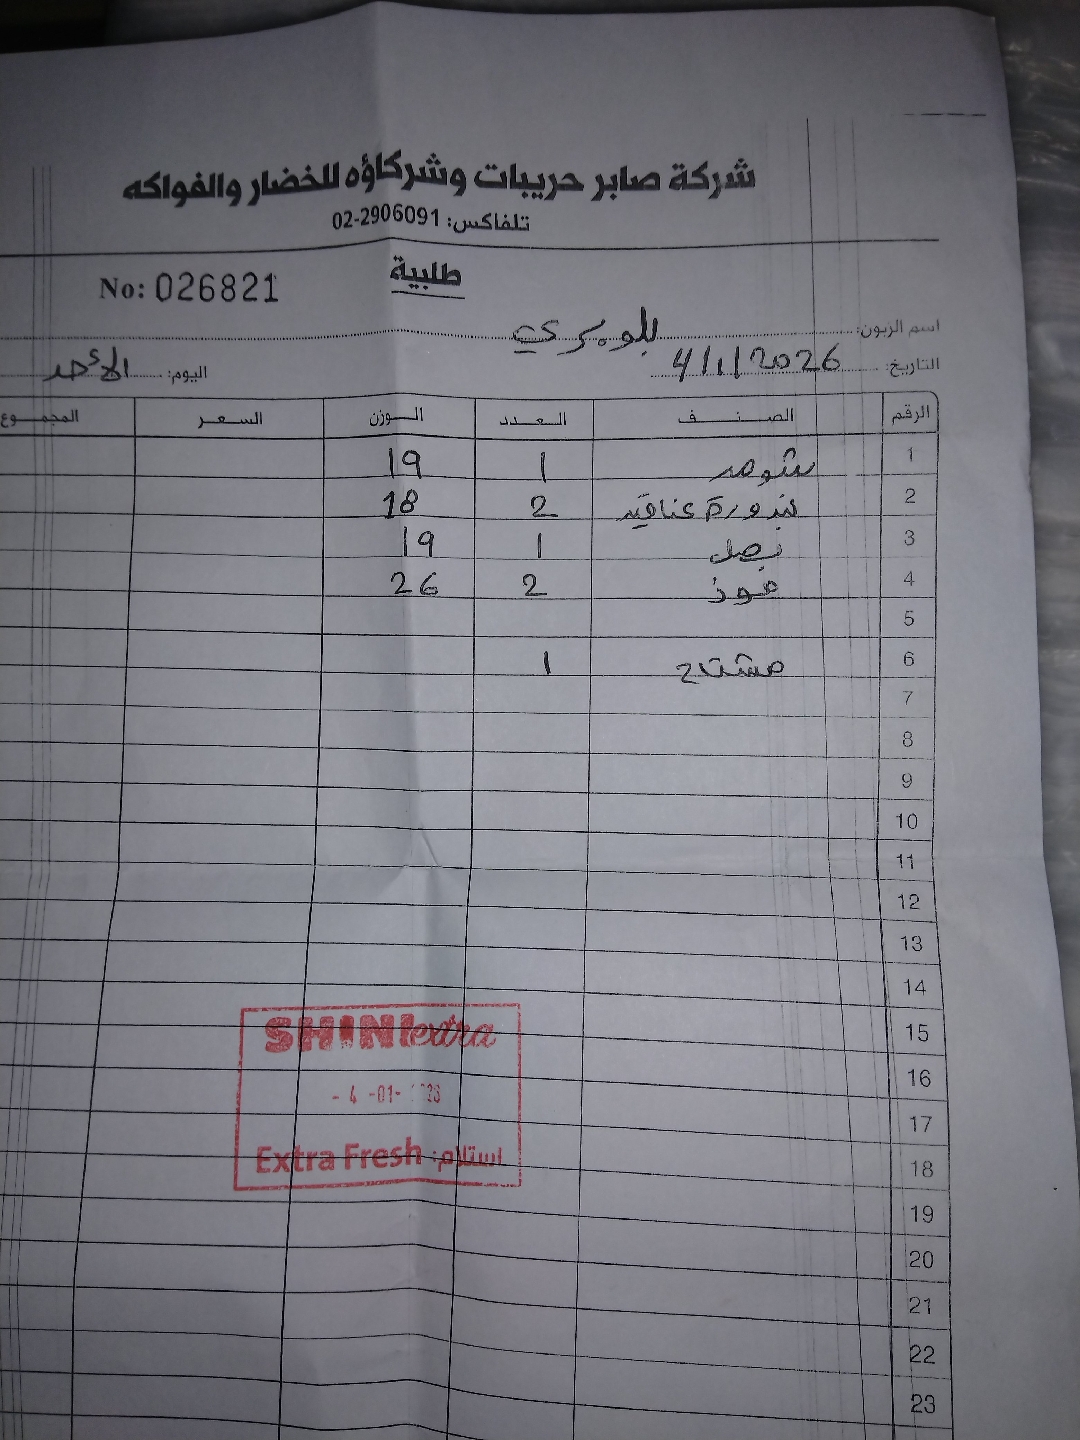 شركة صابر حريبات وشركاؤه للخضار والفواكه
تلفاكس: 02-2906091
طلبية
No: 026821
اسم الزبون:
التاريخ: 4/1/2026 اليوم: الأحد
الرقم الصنف العدد الوزن السعر المجموع
1 شومر 1 19
2 بندورة عناقيد 2 18
3 بصل 1 19
4 موز 2 26
5
6 مشتاح 1
7
8
9
10
11
12
13
14
15
16
17
18
19
20
21
22
23
SHINI extra
- 4 -01-
Extra Fresh استلام: